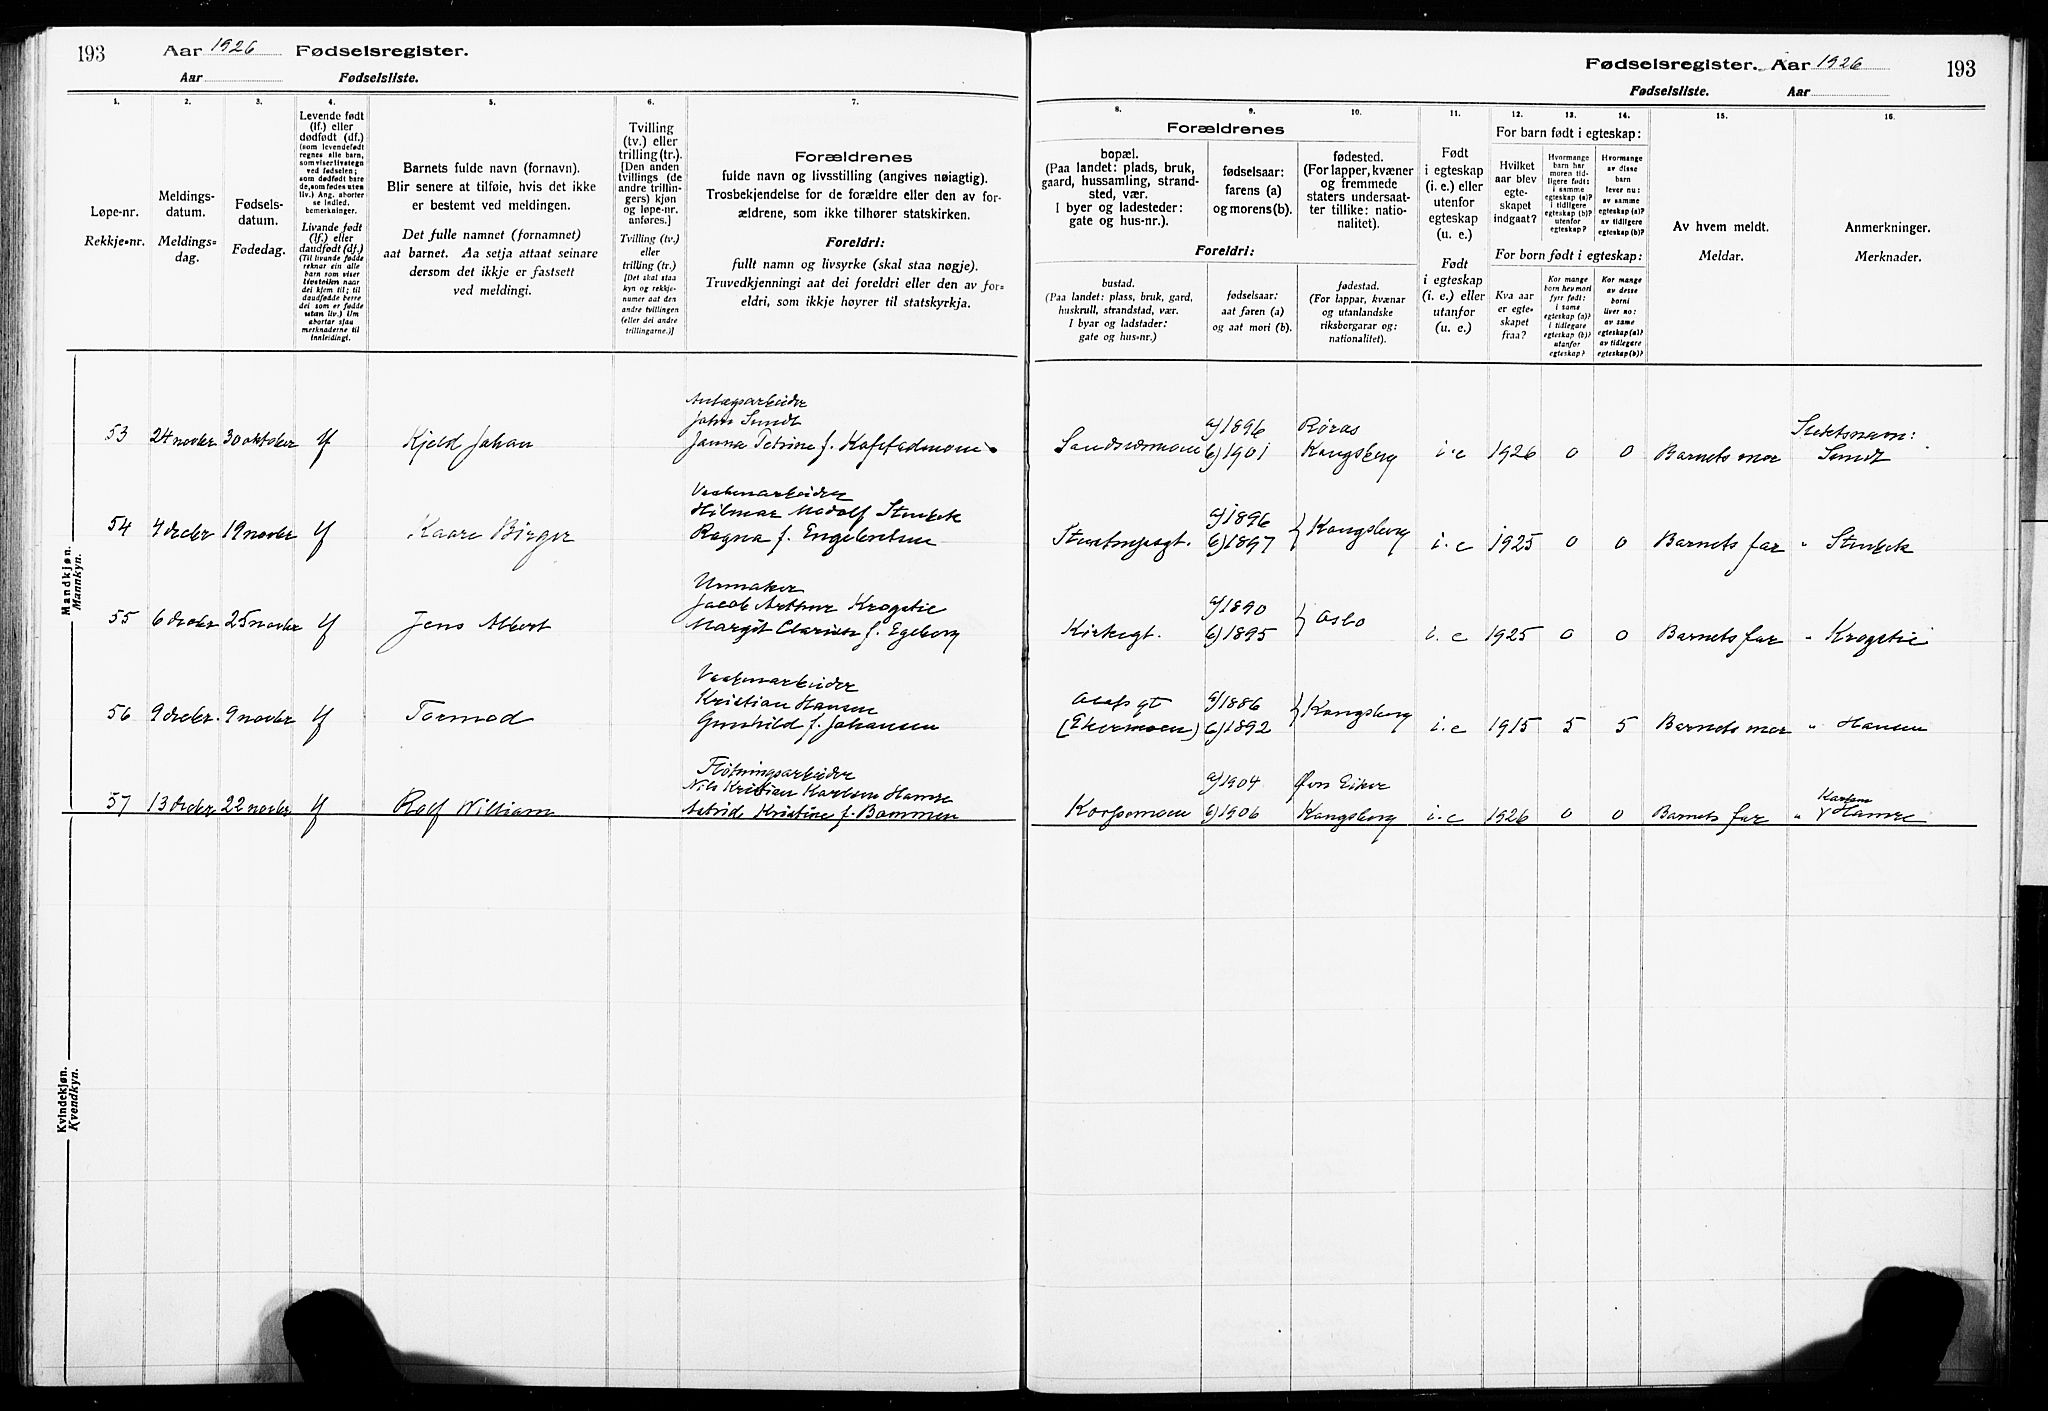 193 Aar 1926 Fødselsregister.
Aar Fødselsliste.
1.
2.
3.
4.
5.
6.
7.
Løpe-nr.
Rekkje-nr.
Meldings-
datum.
Meldings-
dag.
Fødsels-
datum.
Fødedag.
Levende født
(lf.) eller
dødfødt (df.)
(som levendefødt
regnes alle barn,
som viser livstegn
ved fødselen;
som dødfødt bare
de, som fødes uten
liv.) Ang. aborter
se indled.
bemerkninger.
Livande født
(lf.) eller
daudfødt (df.)
(Til livande fødde
reknar ein alle
barn som viser
livsteikn naar
dei kjem til; til
daudfødde berre
dei som er fødde
utan liv.) Um
abortar sjaa
merknaderne til
innleidingi.
Barnets fulde navn (fornavn).
Blir senere at tilføie, hvis det ikke
er bestemt ved meldingen.
Det fulle namnet (fornamnet)
aat barnet. Aa setja attaat seinare
dersom det ikkje er fastsett
ved meldingi.
Tvilling
(tv.) eller
trilling (tr.).
[Den anden
tvillings (de
andre trillin-
gers) kjøn
og løpe-nr.
anføres.]
Tvilling (tv.)
eller
trilling (tr.)
[Det skal staa
kyn og rekkje-
numer aat den
andre tvillingen
(eller dei andre
trillingarne.)]
Forældrenes
fulde navn og livsstilling (angives nøiagtig).
Trosbekjendelse for de forældre eller den av for-
ældrene, som ikke tilhører statskirken.
Foreldri:
fullt namn og livsyrke (skal staa nøgje).
Truvedkjenningi aat dei foreldri eller den av for-
eldri, som ikkje høyrer til statskyrkja.
Mandkjøn.
Mannkyn.
53 24 novbr 30 oktober lf Kjeld Johan
Anlægsarbeider
John Sundt
Janna Petrine f.
54 4 decbr 19 novbr lf Kaare Birger
Vaabenarbeider
Hilmar
Ragna f. Engebretsen
55 6 decbr 25 novbr lf Jens Albert
Urmaker
Jacob Arthur Krogstie
Margit f. Egeberg
56 9 decbr. 9 novbr lf Tormod
Vaabenarbeider
Kristian Hansen
Gunhild f. Johansen
57 13 decbr 22 novbr lf Rolf William
Fløtningsarbeider
Nils Kristian Karlsen Hamre
Astrid Kristine f. Bammen
Kvindekjøn.
Kvendkyn.
Fødselsregister. Aar 1926 193
Fødselsliste. Aar
8.
9.
10.
11.
12.
13.
14.
15.
16.
Forældrenes
bopæl.
(Paa landet: plads, bruk,
gaard, hussamling, strand-
sted, vær.
I byer og ladesteder:
gate og hus-nr.).
fødselsaar:
farens (a)
og morens (b).
fødested.
(For lapper, kvæner
og fremmede
staters undersaat-
ter tillike: natio-
nalitet).
Foreldri:
bustad.
(Paa landet: plass, bruk, gard,
huskrull, strandstad, vær.
I byar og ladstader:
gate og hus-nr.)
fødselsaar:
aat faren (a)
og aat mori (b).
fødestad.
(For lappar, kvænar
og utanlandske
riksborgarar og:
nationalitet).
Født
i egteskap
(i. e.) eller
utenfor
egteskap
(u. e.)
Født
i egteskap
(i. e.) eller
utanfor
(u. e.)
For barn født i egteskap:
Hvilket
aar blev
egte-
skapet
indgaat?
Hvormange
barn har
moren tid-
ligere født:
i samme
egteskap (a)?
i tidligere
egteskap (b)?
utenfor
egteskap?
Hvormange
av disse
barn
lever nu:
av samme
egteskap (a)?
av tidligere
egteskap (b)?
For born født i egteskap:
Kva aar
er egte-
skapet
fraa?
Kor mange
born hev mori
fyrr født:
i same
egteskap (a)?
i tidlegare
egteskap (b)?
utanfor
egteskap?
Kor mange
av desse
borni
liver no:
av same
egteskap (a)?
av tidlegare
egteskap (b)?
Av hvem meldt.
Meldar.
Anmerkninger.
Merknader.
a) 1896 Røros
b) 1901 Kongsberg i.e 1926 0 0 Barnets mor
Slektsnavn:
Sundt
a) 1896
b) 1897 } Kongsberg i.e 1925 0 0 Barnets far "
Kirkegt.
a) 1890
b) 1895 } Oslo i.e 1925 0 0 Barnets far " Krogstie
Olafs gt
(Ekermoen)
a) 1886
b) 1892 } Kongsberg i.e 1915 5 5 Barnets mor " Hansen
a) 1904 Øvre Eiker
b) 1906 Kongsberg i.e 1926 0 0 Barnets far "
Karlsen
Hamre